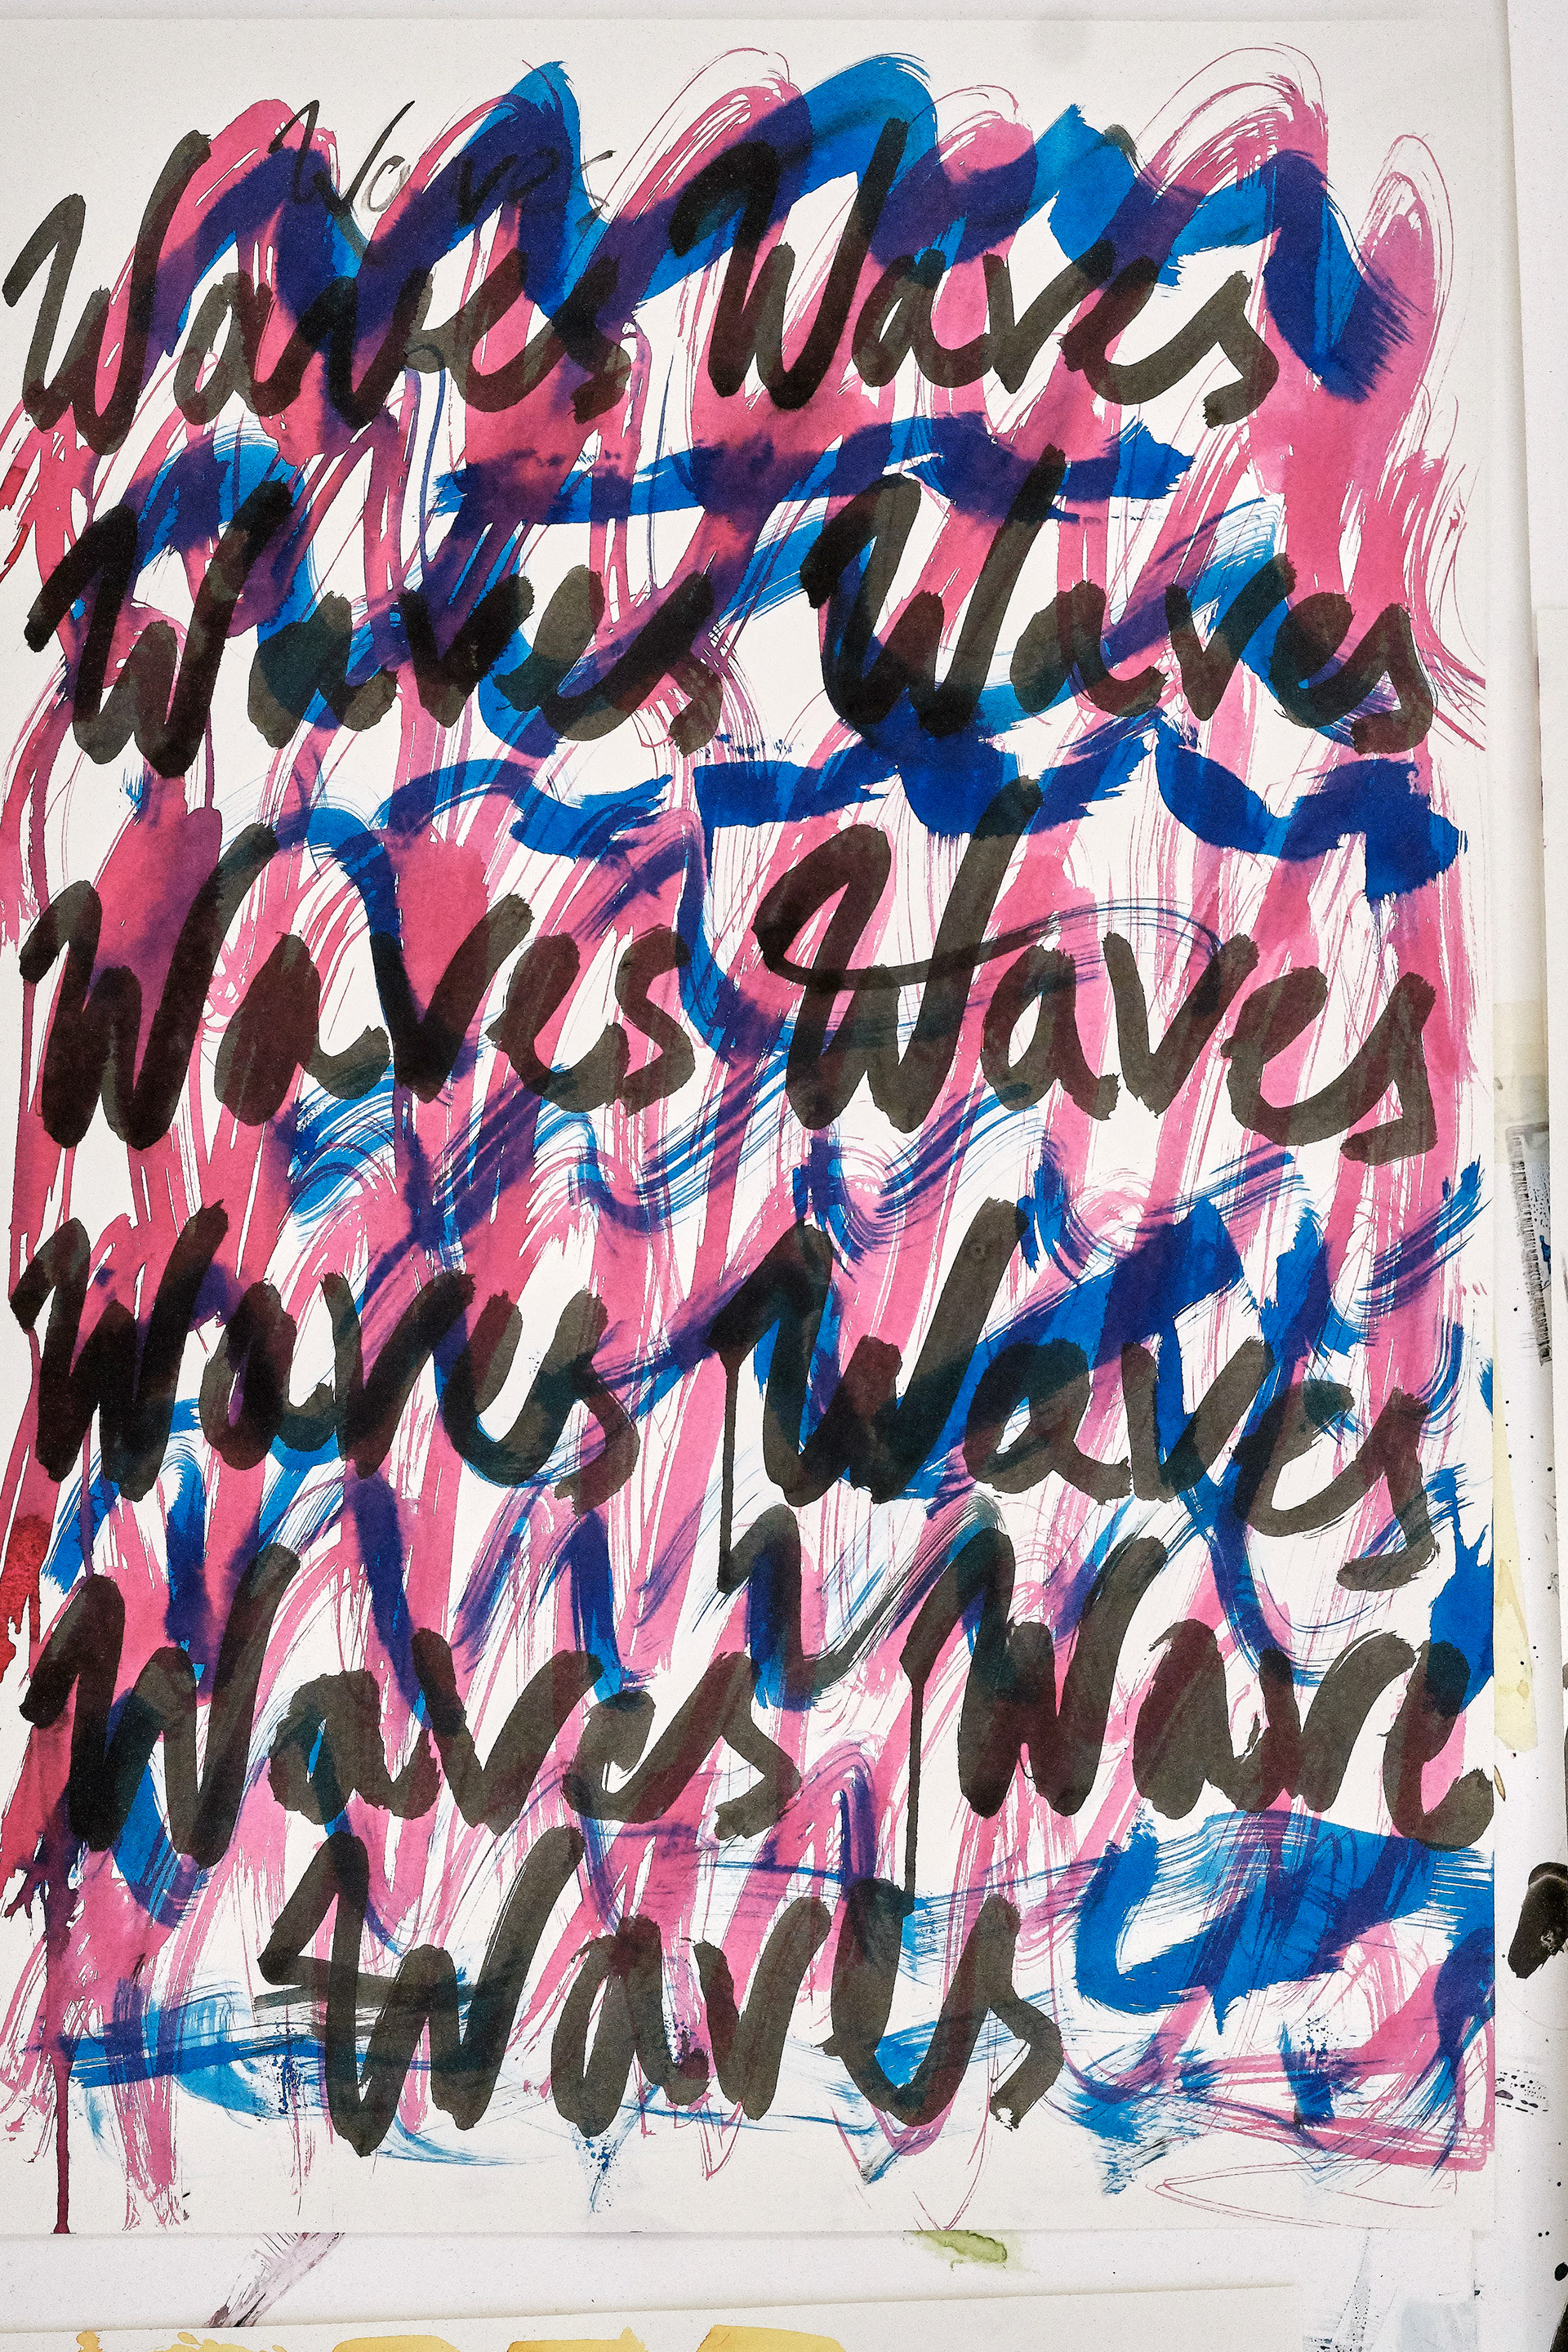 Waves
Waves Waves
Waves Waves
Waves Waves
Waves Waves
Waves Wave
Waves